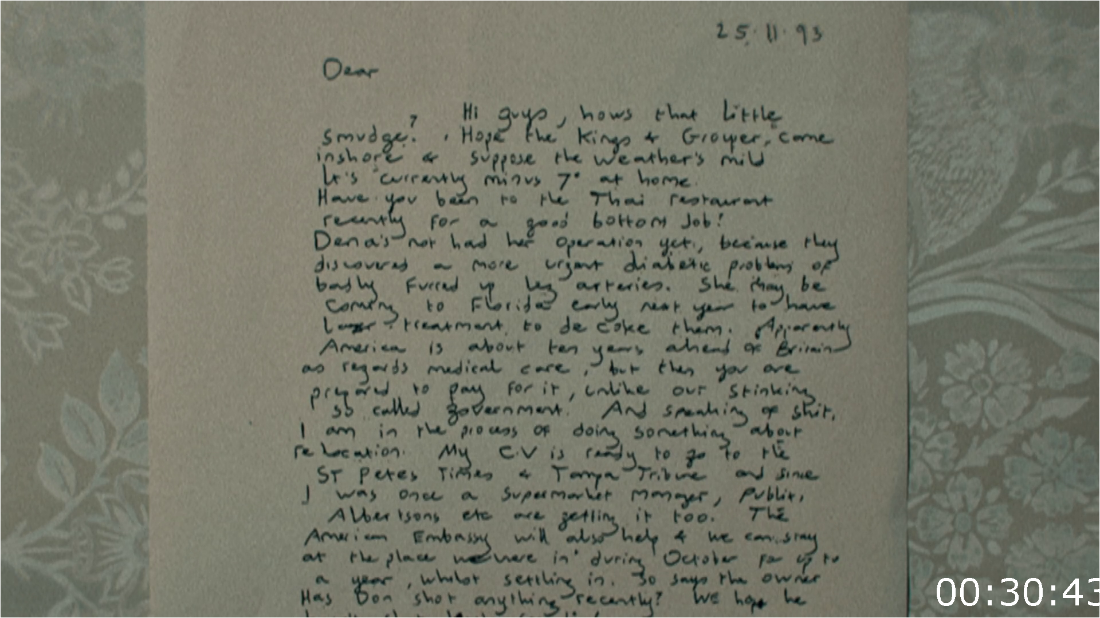 25.11.93
Dear
Hi guys, hows that little
smudge? Hope the Kings & Grouper, come
inshore & suppose the weather's mild
It's currently minus 7° at home.
Have you been to the Thai restaurant
recently for a good bottom job?
Dena's not had her operation yet, because they
discovered a more urgent diabetic problem of
badly furred up leg arteries. She may be
coming to Florida early next year to have
laser treatment to de coke them. Apparently
America is about ten years ahead of Britain
as regards medical care, but then you are
prepared to pay for it, unlike our stinking
so called government. And speaking of shit,
I am in the process of doing something about
relocation. My C.V is ready to go to the
ST Petes Times & Tampa Tribune and since
I was once a Supermarket Manager, Publix,
Albertsons etc are getting it too. The
American Embassy will also help & we can stay
at the place we were in during October for up to
a year, whilst settling in. So says the owner
Has Don shot anything recently? We hope he
00:30:43